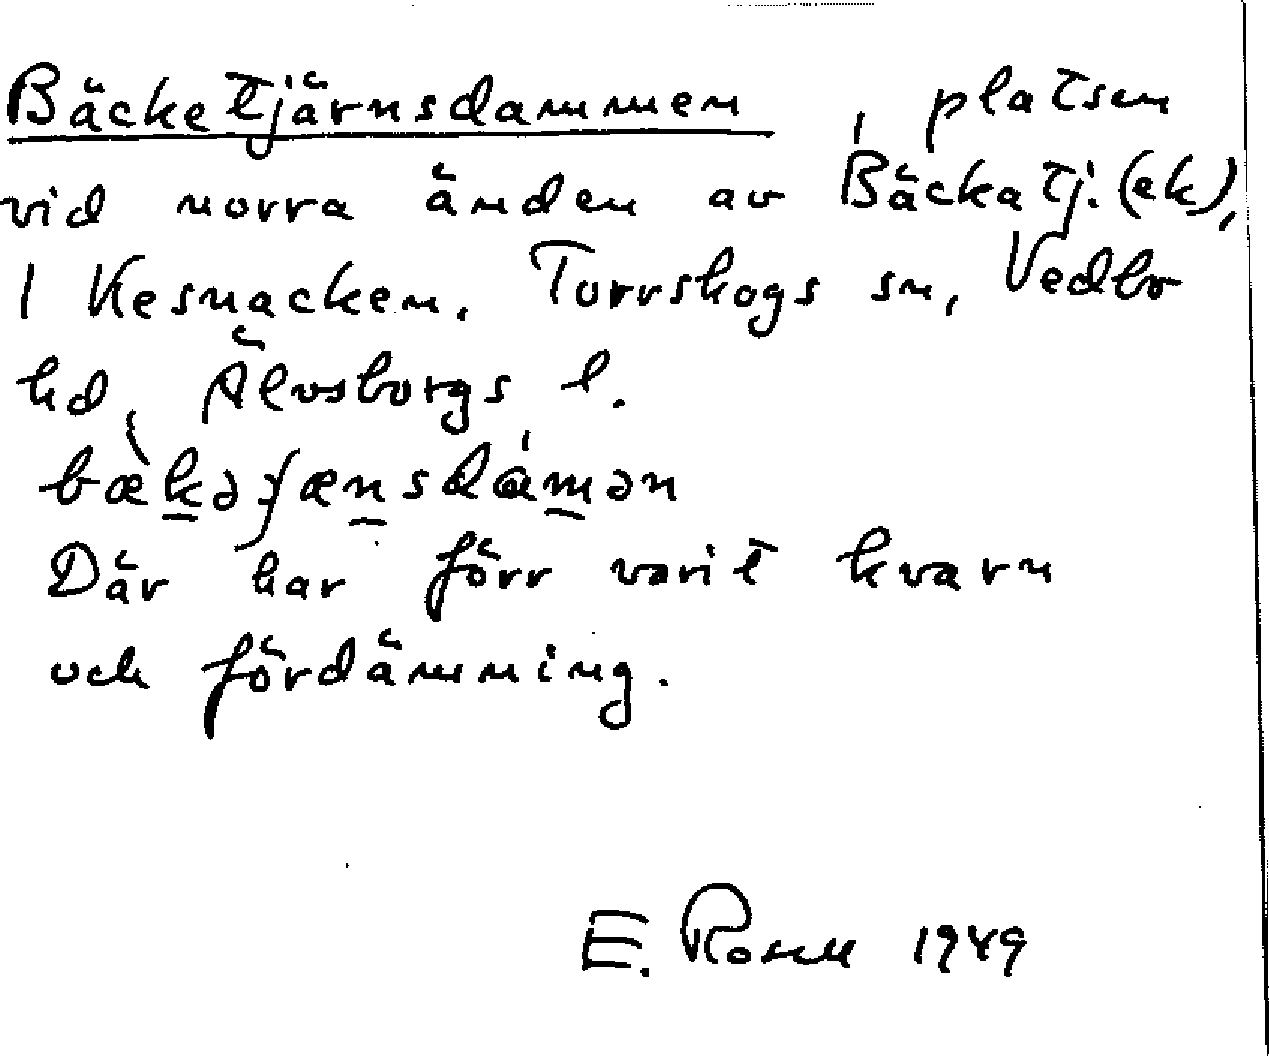 Bäcketjärnsdammen, platsen
vid norra änden av Bäckatj. (ek),
i Kesnacken. Torrskogs sn, Vedbo
hd, Älvsborgs l.
Där har förr varit kvarn
och fördämning.
E. Rosell 1949